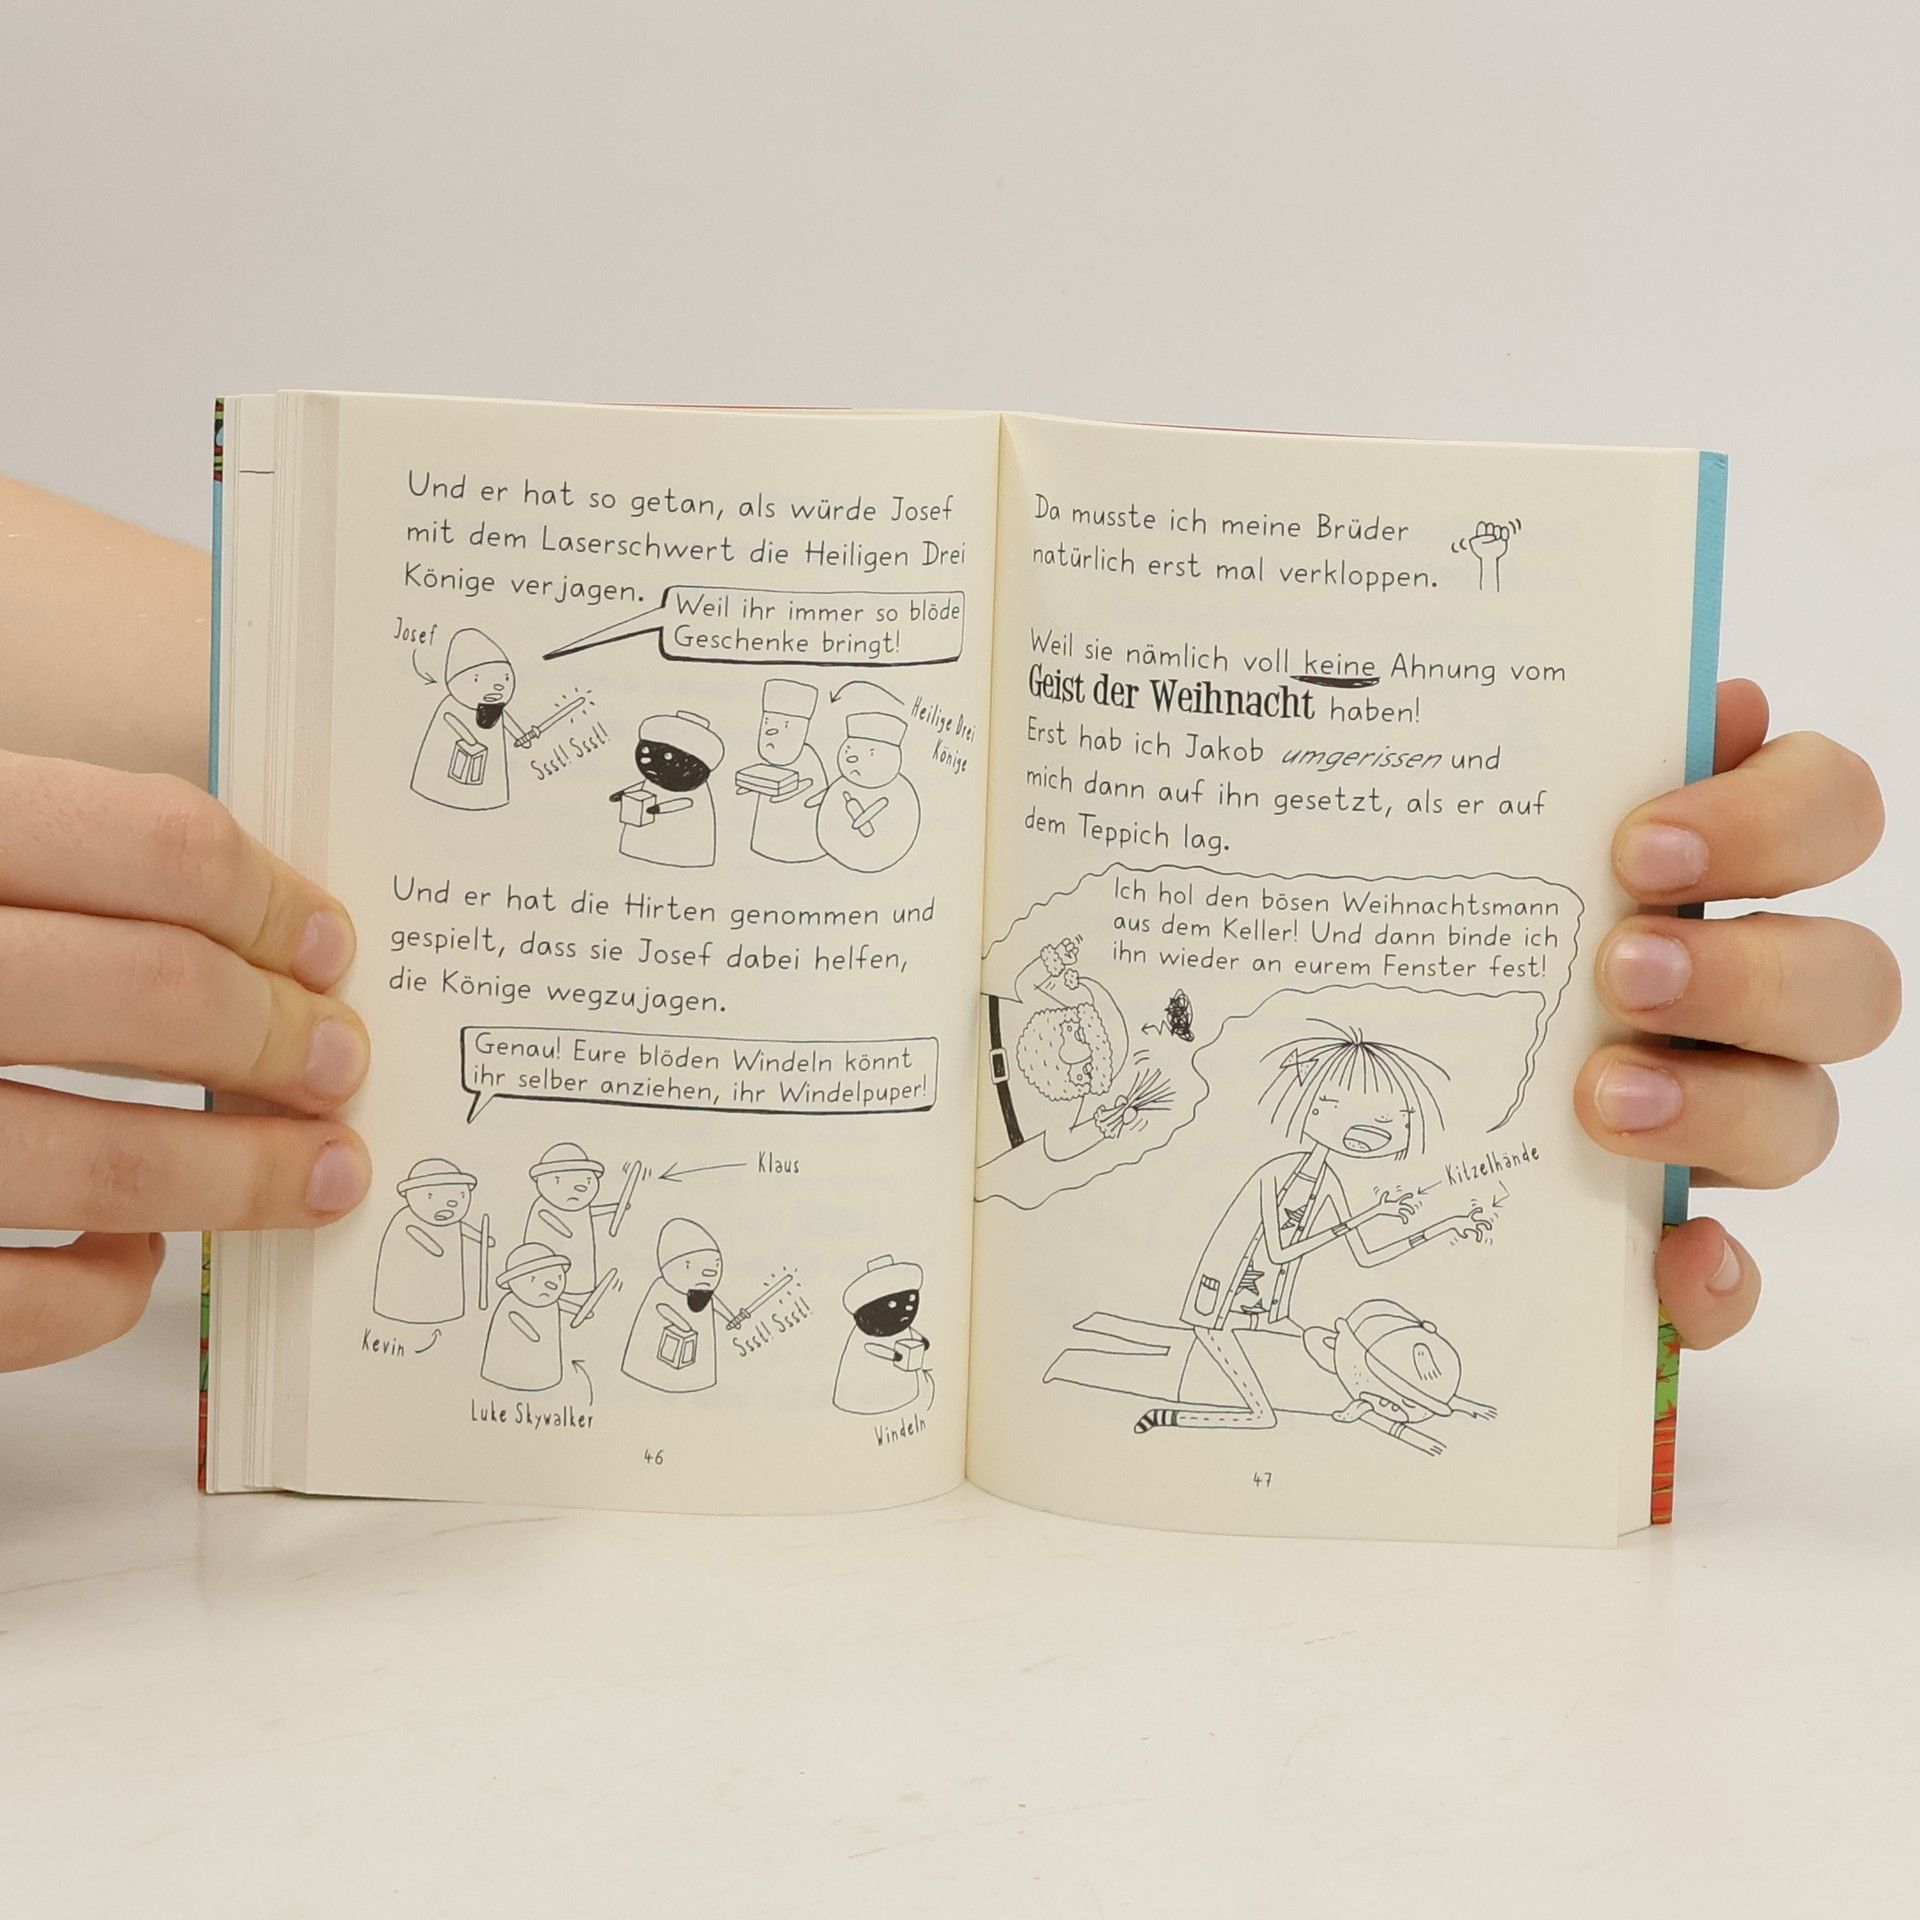 Und er hat so getan, als würde Josef
mit dem Laserschwert die Heiligen Drei
Könige verjagen.
Weil ihr immer so blöde
Geschenke bringt!
Josef
Ssst! Ssst!
Heilige Drei
Könige
Und er hat die Hirten genommen und
gespielt, dass sie Josef dabei helfen,
die Könige wegzujagen.
Genau! Eure blöden Windeln könnt
ihr selber anziehen, ihr Windelpuper!
Klaus
Kevin
Luke Skywalker
Ssst! Ssst!
Windeln
46
Da musste ich meine Brüder
natürlich erst mal verkloppen.
Weil sie nämlich voll keine Ahnung vom
Geist der Weihnacht haben!
Erst hab ich Jakob umgerissen und
mich dann auf ihn gesetzt, als er auf
dem Teppich lag.
Ich hol den bösen Weihnachtsmann
aus dem Keller! Und dann binde ich
ihn wieder an eurem Fenster fest!
Kitzelhände
47